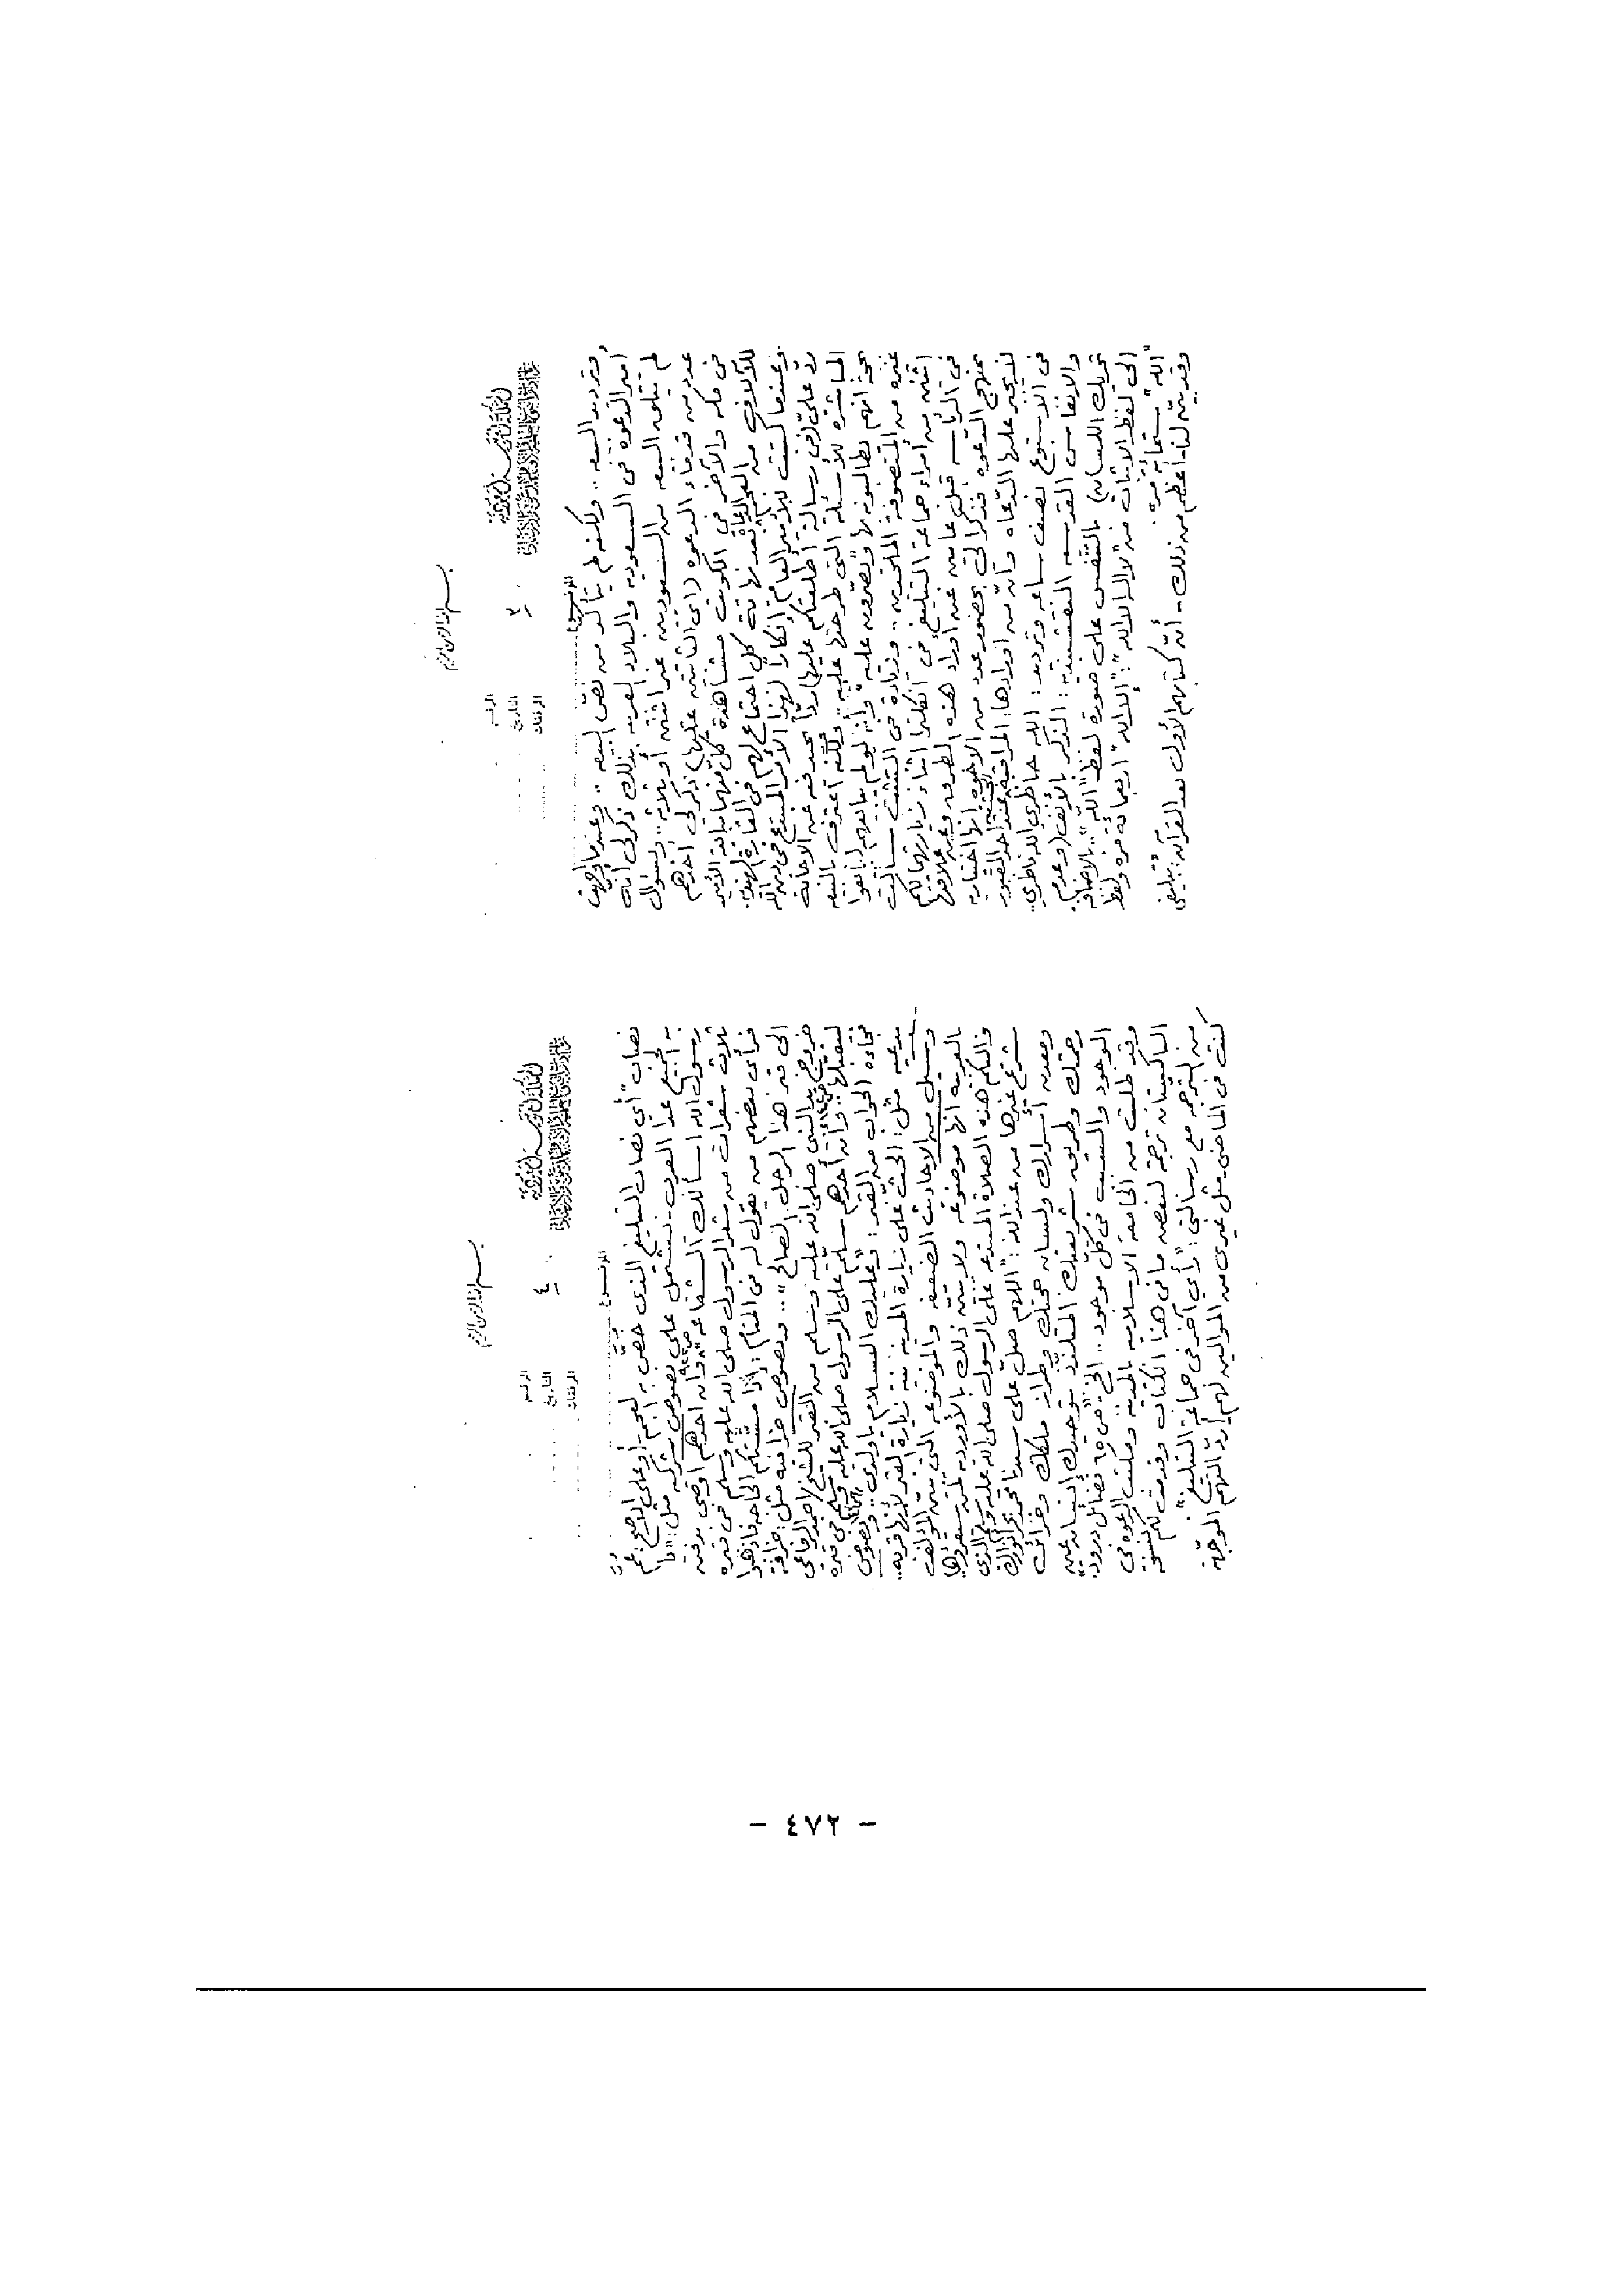 بسم الله الرحمن الرحيم
الرقم
٣
التاريخ
المرفقات
الموضوع
وتردید البیعه .. ولكنه لم يتأكد من نصّ البيعه .. وعندما واجهت
أمير الدعوة فى السعوديه والبلاد العربيه بذلك ذكر لى أنه
لم يتلق البيعه من السعوديين غير اثنين أو ثلاثة
عدد من قدماء الدعوه ذكر لى أحدهم
فى مكه والآخر فى الكويت مشاهدة كل منهما مبايعة الأمير
للآلاف من العجم
وعندما كتبت للأمير العام إنكاراً لهذا الأمر المبتدع فى دين الله
ردّ علىّ فى رسالة أطلعتكم عليها ردّاً
المباشره للأسئلة التى طرحتها عليه .. ولكنه اعترف بالبيعه
بحجة أنهم يطالبونه بها ويصرّون عليه وأنه لو لم يبايعهم لبايعوا
غيره من المتصوفة الملحدين .. وزيادة فى التثبت سألت
اثنين من أمراء جماعة التبليغ فى انكلترا أثناء زيارتهما لكم
فى الرئاسه قبل عامين عن أوراد هذه الطرق وعن علاقتها
بمنهج الدعوه فذكرا لى بحضور عدد من الاخوه إنها اختياريه
لا يجبر عليها الدعاه وأنّ من أورادها المراقبة
فى الأسبوع نصف ساعه وترديد: الله حاظرى الله ناظرى
والأنفاس القدسيه النقشبنديه: الذكر بالأنف (وعدم
تحريك اللسان) بالتنفس على صورة لفظ "الله" بالاضافه
الى لفظ الاثبات من لا إله إلا الله: "إلا الله" أربعمائة مره ولفظ
"الله" ستمائة مرّة.
وقد يتبين لنا أعظم من ذلك - أنّ كتابهم الأول بعد القرآن: تبليغى
بسم الله الرحمن الرحيم
الرقم
٤
التاريخ
المرفقات
الموضوع
نصاب" أى نصاب التبليغ الذى خصّ به العجم أو على الأصح عمّ
به الجميع عدا العرب - يشتمل على نصوص شركيه مثل: "يا
رسول الله اسألك الشفاعه" وأن أحدهم أوصى بدفنه
ثلاث شعرات من شعر الرسول صلى الله عليه وسلم فى قبره
فرأى بعضهم من يقول له فى المنام: إذا مسّتكم الحاجه فاذهبوا
الى قبر هذا الرجل الصالح" .. ونصوص خرافيه مثل: خرافة
خروج يد النبى صلى الله عليه وسلم من القبر للشيخ أحمد الرفاعى
ليقبّلها .. وأن أحدهم سلّم على الرسول صلى الله عليه وسلم فى قبره
فجاءه الجواب من القبر: "وعليك السلام يا ولدى" .. ونصوص
بدعيه مثل: الحث على زيارة المدينه بنية زيارة القبر لأنها قربه،،
وسيل من الأحاديث الضعيفه والموضوعه التى بيّن المؤلف
بالعربيه أنها موضوعه ولا يتبيّن ذلك بالأورديه لمن سيقرؤها
واليكم هذه الصلاة المبتدعه على الرسول صلى الله عليه وسلم الذى
شرع غيرها من عند الله: "اللهم صلّ على سيدنا محمد بحر أنوارك
ومعدن أسرارك ولسان حجتك وطراز ملكك وخزائن
رحمتك وطريق شريعتك المتلذذ بتوحيدك إنسان عين
الوجود والسبب فى كلّ موجود .. الخ" من ص ٦٥ فضائل درود.
وقد طلبت من الجامعه الاسلاميه بالمدينه ومكتب الدعوه فى
الباكستان ترجمة لبعض ما فى هذا الكتاب وقدمت لكم نسخة
من الترجمه مع رسالتى: "رأى آخر فى جماعة التبليغ".
كنت فى الماضى - مثل غيرى من الموالين لهم أردّ التهم الموجّهة
- ٤٧٢ -